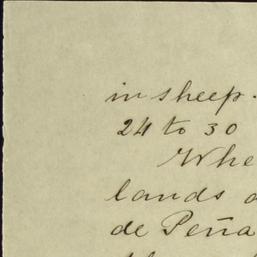 in sheep.
24 to 30
Whe
lands
de Peña